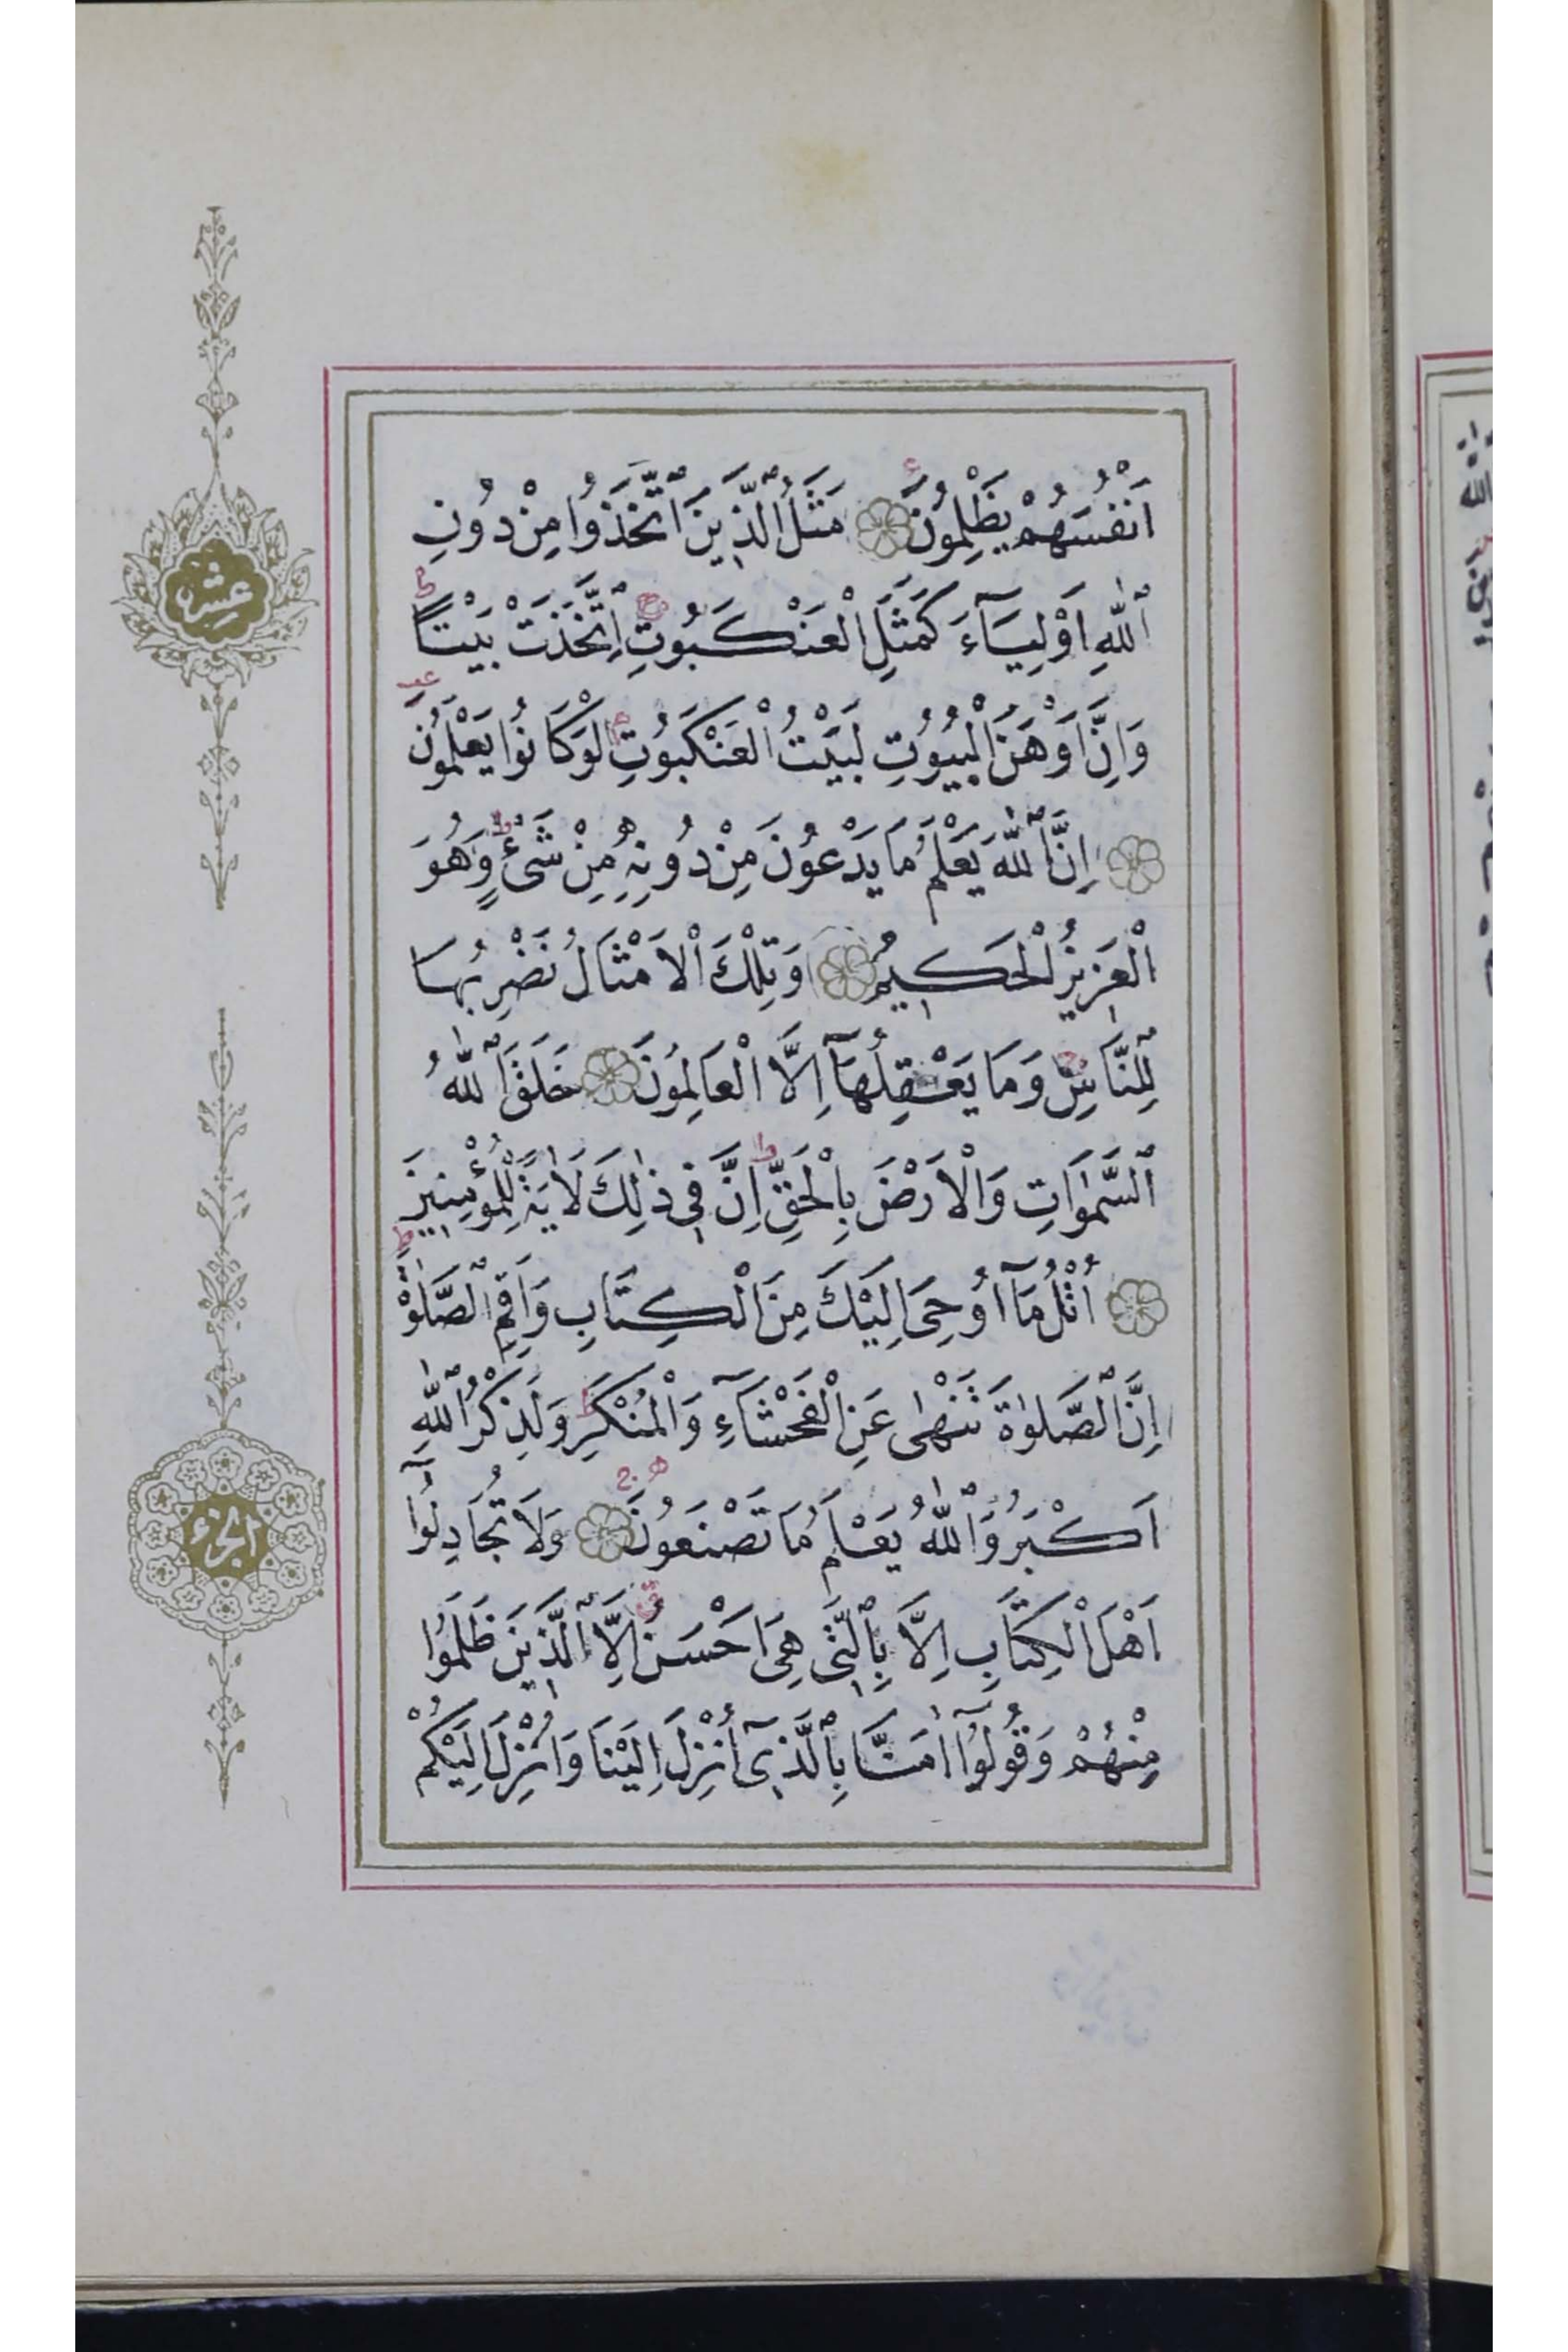 اَنْفُسَهُمْ يَظْلِمُونَ مَثَلُ الَّذِينَ اتَّخَذُوا مِنْ دُونِ
اللّٰهِ اَوْلِيَآءَ كَمَثَلِ الْعَنْكَبُوتِ اِتَّخَذَتْ بَيْتًا
وَاِنَّ اَوْهَنَ الْبُيُوتِ لَبَيْتُ الْعَنْكَبُوتِ لَوْ كَانُوا يَعْلَمُونَ
اِنَّ اللّٰهَ يَعْلَمُ مَا يَدْعُونَ مِنْ دُونِهِ مِنْ شَیْءٍ وَهُوَ
الْعَزِيزُ الْحَكِيمُ وَتِلْكَ الْاَمْثَالُ نَضْرِبُهَا
لِلنَّاسِ وَمَا يَعْقِلُهَآ اِلَّا الْعَالِمُونَ خَلَقَ اللّٰهُ
السَّمٰوَاتِ وَالْاَرْضَ بِالْحَقِّ اِنَّ فِی ذٰلِكَ لَاٰيَةً لِلْمُؤْمِنِينَ
اُتْلُ مَآ اُو۫حِیَ اِلَيْكَ مِنَ الْكِتَابِ وَاَقِمِ الصَّلٰوةَ
اِنَّ الصَّلٰوةَ تَنْهٰى عَنِ الْفَحْشَآءِ وَالْمُنْكَرِ وَلَذِكْرُ اللّٰهِ
اَكْبَرُ وَاللّٰهُ يَعْلَمُ مَا تَصْنَعُونَ وَلَا تُجَادِلُوٓا
اَهْلَ الْكِتَابِ اِلَّا بِالَّتِی هِیَ اَحْسَنُ اِلَّا الَّذِينَ ظَلَمُوا
مِنْهُمْ وَقُولُوٓا اٰمَنَّا بِالَّذِیٓ اُنْزِلَ اِلَيْنَا وَاُنْزِلَ اِلَيْكُمْ
عشر
الجزء